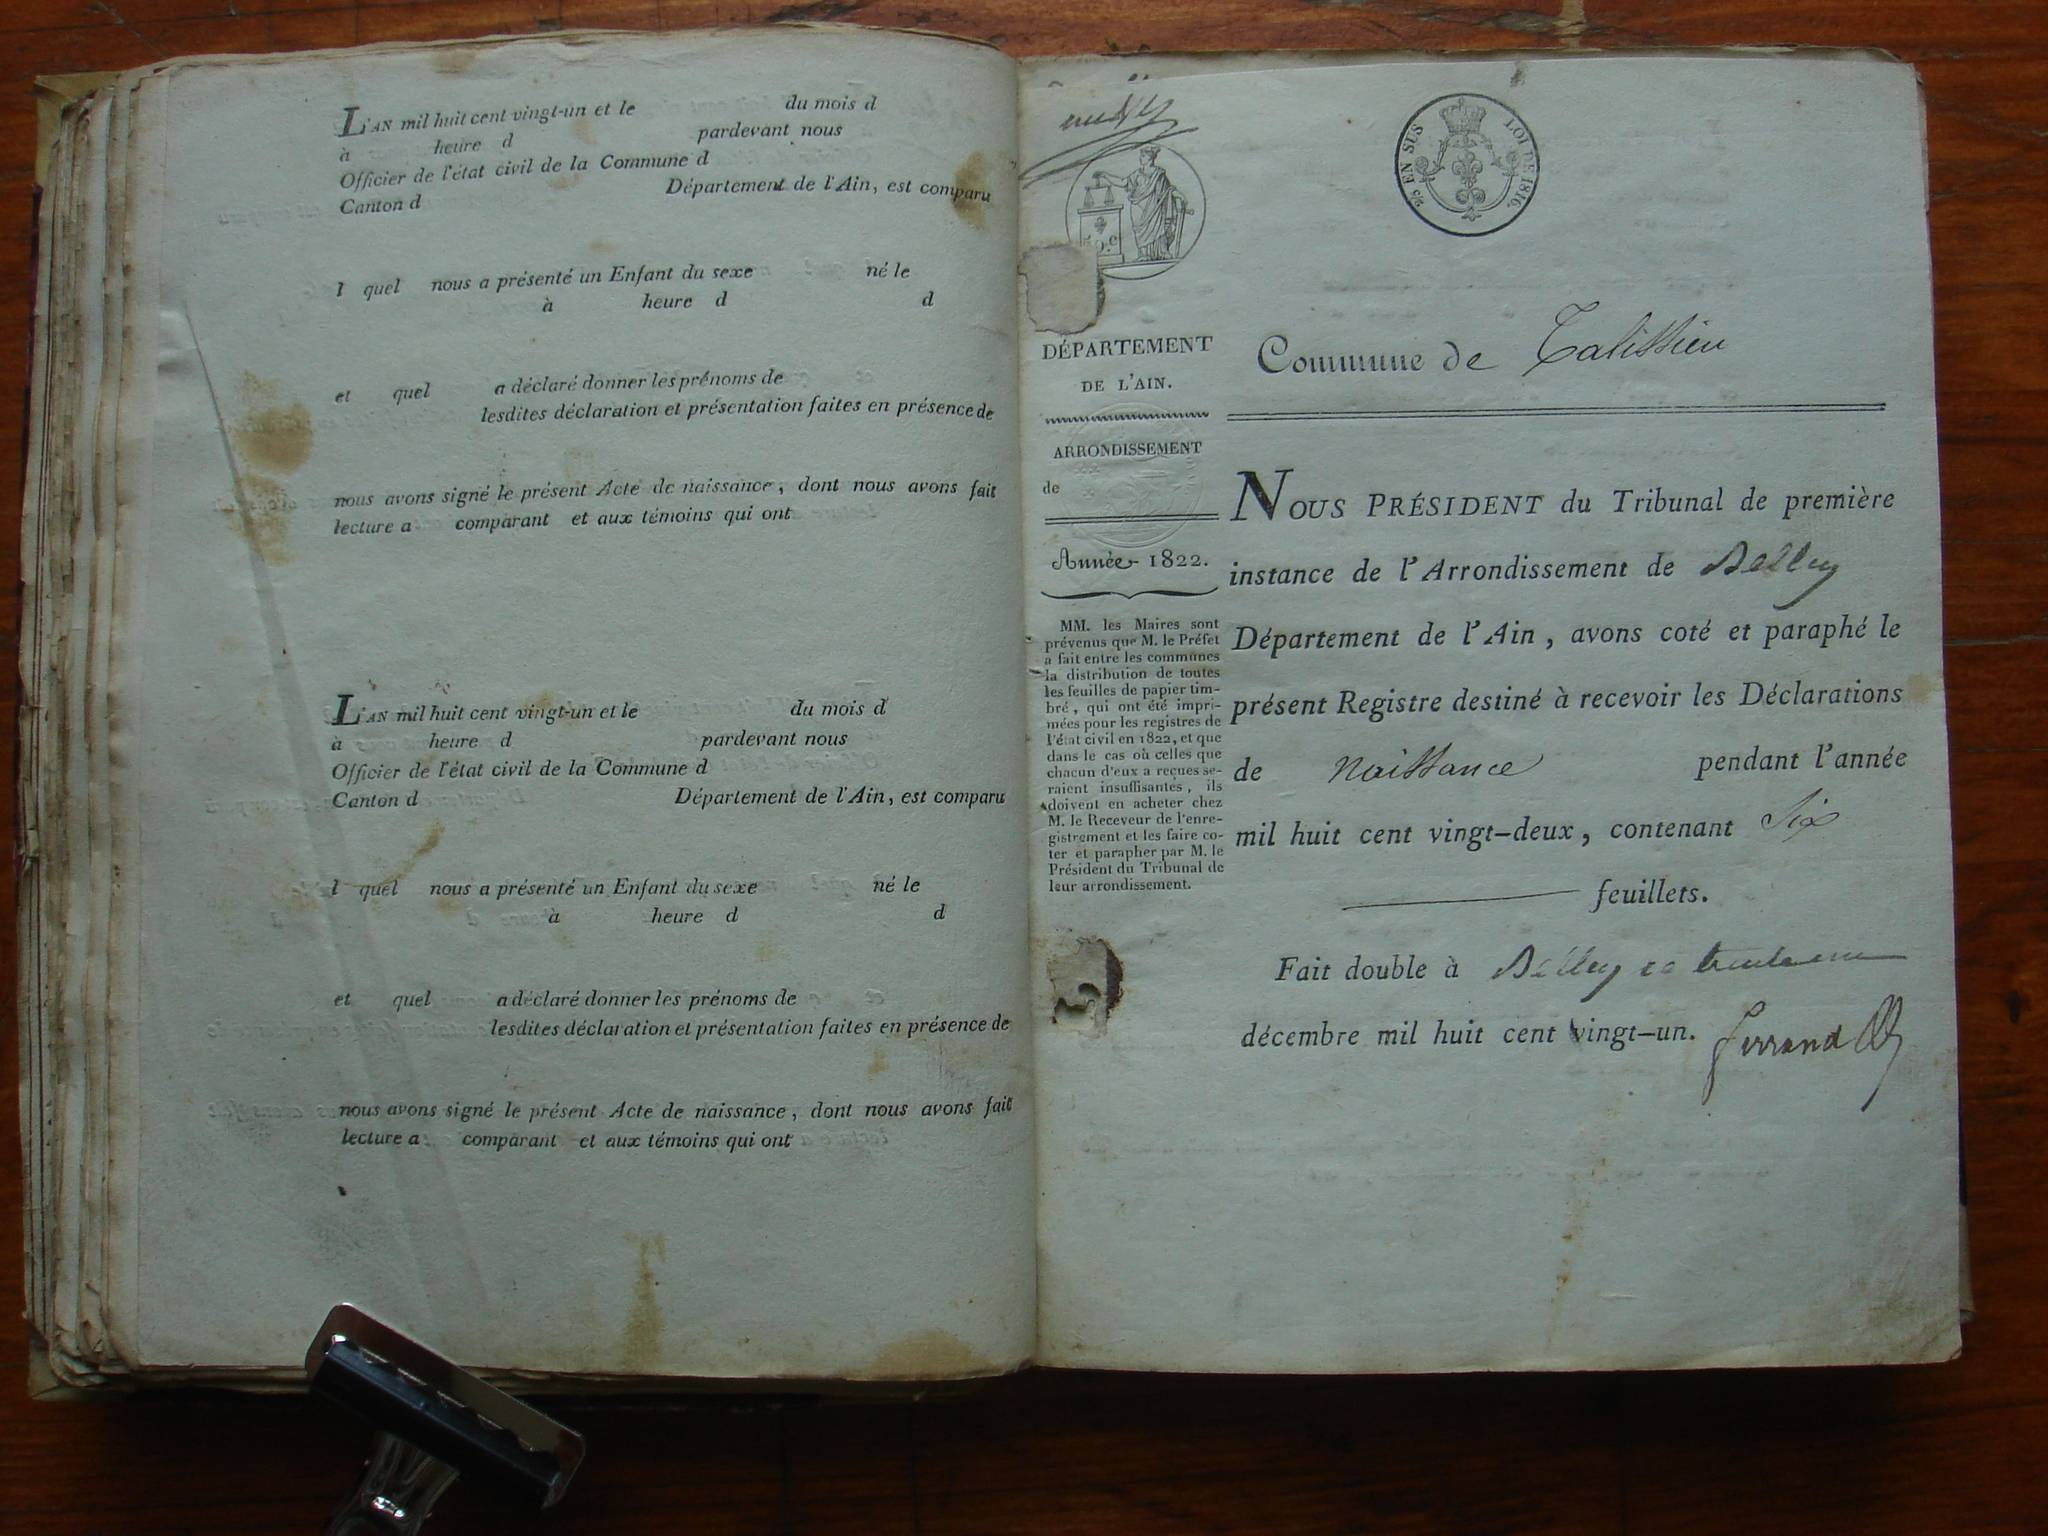 L'AN mil huit cent vingt-un et le du mois d
à heure d pardevant nous
Officier de l'état civil de la Commune d
Canton d Département de l'Ain, est comparu
l quel nous a présenté un Enfant du sexe né le
à heure d d
et quel a déclaré donner les prénoms de
lesdites déclaration et présentation faites en présence de
nous avons signé le présent Acte de naissance, dont nous avons fait
lecture a comparant et aux témoins qui ont
L'AN mil huit cent vingt-un et le du mois d
à heure d pardevant nous
Officier de l'état civil de la Commune d
Canton d Département de l'Ain, est comparu
l quel nous a présenté un Enfant du sexe né le
à heure d d
et quel a déclaré donner les prénoms de
lesdites déclaration et présentation faites en présence de
nous avons signé le présent Acte de naissance, dont nous avons fait
lecture a comparant et aux témoins qui ont
EN SUS LOI DE 1816.
DÉPARTEMENT
DE L'AIN.
ARRONDISSEMENT
de
Année 1822.
MM. les Maires sont
prévenus que M. le Préfet
a fait entre les communes
la distribution de toutes
les feuilles de papier tim-
bré, qui ont été impri-
mées pour les registres de
l'état civil en 1822, et que
dans le cas où celles que
chacun d'eux a reçues se-
raient insuffisantes, ils
doivent en acheter chez
M. le Receveur de l'enre-
gistrement et les faire co-
ter et parapher par M. le
Président du Tribunal de
leur arrondissement.
Commune de Talissieu
NOUS PRÉSIDENT du Tribunal de première
instance de l'Arrondissement de Belley
Département de l'Ain, avons coté et paraphé le
présent Registre destiné à recevoir les Déclarations
de Naissance pendant l'année
mil huit cent vingt-deux, contenant Six
feuillets.
Fait double à Belley ce trente un
décembre mil huit cent vingt-un. Ferrand